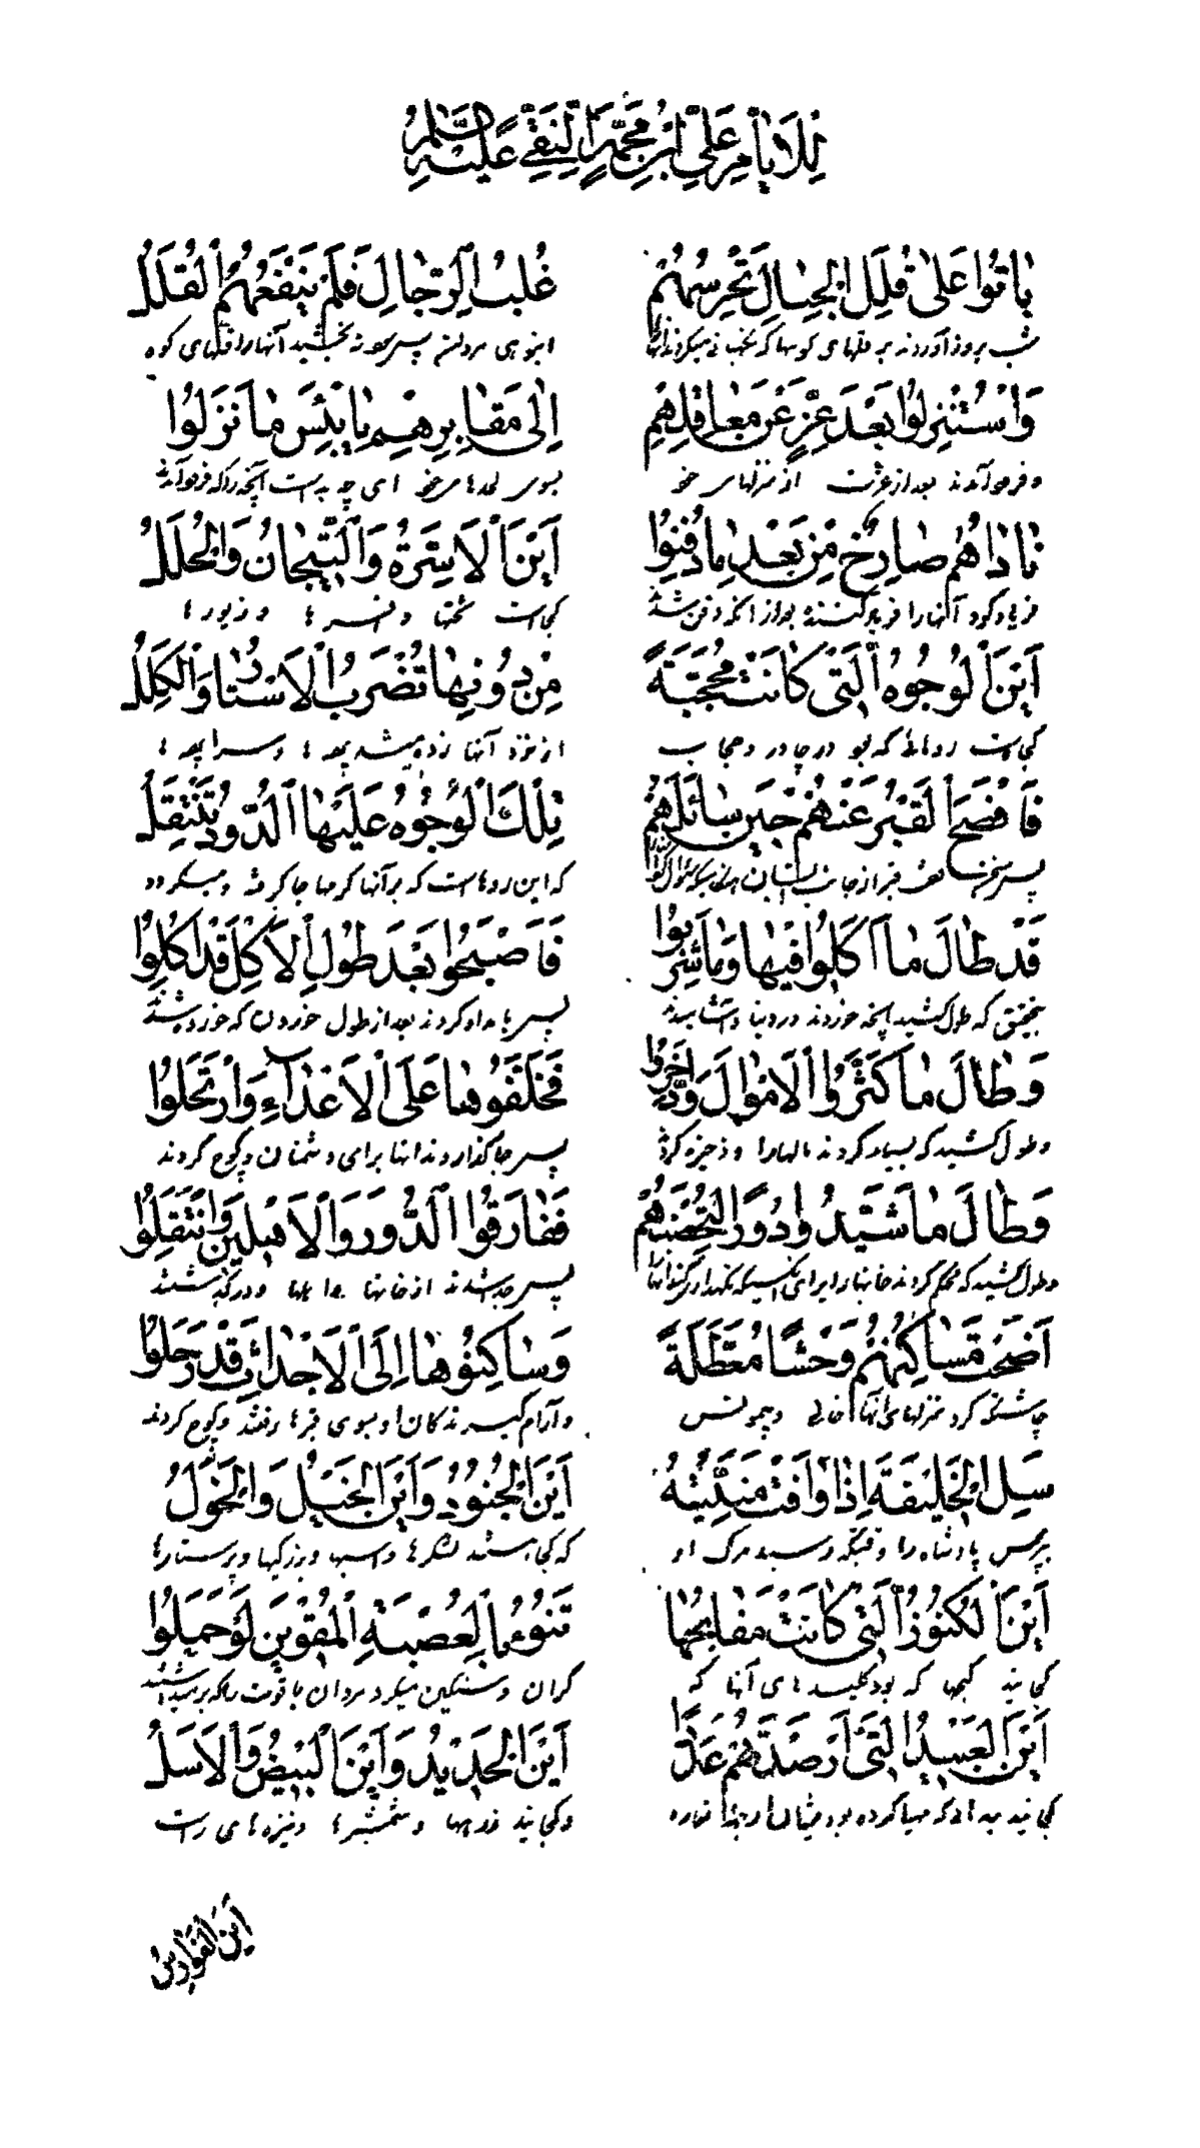 لِلْاِمامِ عَلِيِّ ابْنِ مُحَمَّدٍ النَّقِيِّ عَلَيْهِ السَّلامُ
باتُوا عَلىٰ قُلَلِ الْجِبالِ تَحْرِسُهُمْ غُلْبُ الرِّجالِ فَلَمْ يَنْفَعْهُمُ الْقُلَلُ
شب بروز آوردند بر قلهای کوهها که نگهبانی میکردند آنها انبوهی مردان پس سود نبخشید آنها را قلهای کوه
وَاسْتُنْزِلُوا بَعْدَ عِزٍّ عَنْ مَعاقِلِهِمْ اِلىٰ مَقابِرِهِمْ يا بِئْسَ ما نَزَلُوا
و فرود آمدند بعد از عزت از منزلهای خود بسوی لحدهای خود ای چه بد است آنچه را که فرود آمدند
ناداهُمْ صارِخٌ مِنْ بَعْدِ ما دُفِنُوا اَيْنَ الْاَسِرَّةُ وَالتِّيجانُ وَالْحُلَلُ
فریاد کرد آنها را فریاد کننده بعد از آنکه دفن شدند کجاست تختها و افسرها و زیورها
اَيْنَ الْوُجُوهُ الَّتِي كانَتْ مُحَجَّبَةً مِنْ دُونِها تُضْرَبُ الْاَسْتارُ وَالْكِلَلُ
کجاست روهائی که بود در چادر و حجاب از نزد آنها زده میشد پرده ها و سراپرده ها
فَاَفْصَحَ الْقَبْرُ عَنْهُمْ حِينَ سائَلَهُمْ تِلْكَ الْوُجُوهُ عَلَيْهَا الدُّودُ تَنْتَقِلُ
که این روهاست که بر آنها کرمها جا گرفته و میگردد
قَدْ طالَ ما اَكَلُوا فِيها وَما شَرِبُوا فَاَصْبَحُوا بَعْدَ طُولِ الْاَكْلِ قَدْ اُكِلُوا
بتحقیق که طول کشید آنچه خوردند در دنیا و آشامیدند پس بامداد کردند بعد از طول خوردن که خورده شدند
وَطالَ ما كَثَّرُوا الْاَمْوالَ وَادَّخَرُوا فَخَلَّفُوها عَلَى الْاَعْداءِ وَارْتَحَلُوا
و طول کشید که بسیار کردند مالها را و ذخیره کردند پس جا گذاردند آنها برای دشمنان و کوچ کردند
وَطالَ ما شَيَّدُوا دُورًا لِتُحْصِنَهُمْ فَفارَقُوا الدُّورَ وَالْاَهْلِينَ وَانْتَقَلُوا
و طول کشید که محکم کردند خانها را برای اینکه نگهدارد آنها را پس جدا شدند از خانها و اهلها و درگذشتند
اَضْحَتْ مَساكِنُهُمْ وَحْشًا مُعَطَّلَةً وَساكِنُوها اِلَى الْاَجْداثِ قَدْ رَحَلُوا
چاشت کرد منزلهای آنها خالی و بیمونس و آرام گیرندگان او بسوی قبرها رفتند و کوچ کردند
سَلِ الْخَلِيفَةَ اِذْ وافَتْ مَنِيَّتُهُ اَيْنَ الْجُنُودُ وَاَيْنَ الْخَيْلُ وَالْخَوَلُ
بپرس پادشاه را وقتیکه رسید مرگ او که کجا هستند لشگرها و اسبها و بزرگیها و پرستارها
اَيْنَ الْكُنُوزُ الَّتِي كانَتْ مَفاتِحُها تَنُوءُ بِالْعُصْبَةِ الْمُقْوِينَ لَوْ حَمَلُوا
کجایند گنجها که بود کلیدهای آنها که گران و سنگین میکرد مردان با قوت را که برمیداشتند
اَيْنَ الْعَبِيدُ الَّتِي اَرْصَدْتَهُمْ عَدَدًا اَيْنَ الْحَدِيدُ وَاَيْنَ الْبِيضُ وَالْاَسَلُ
و کجایند زرهها و شمشیرها و نیزه های راست
اَيْنَ الْفَوارِسُ